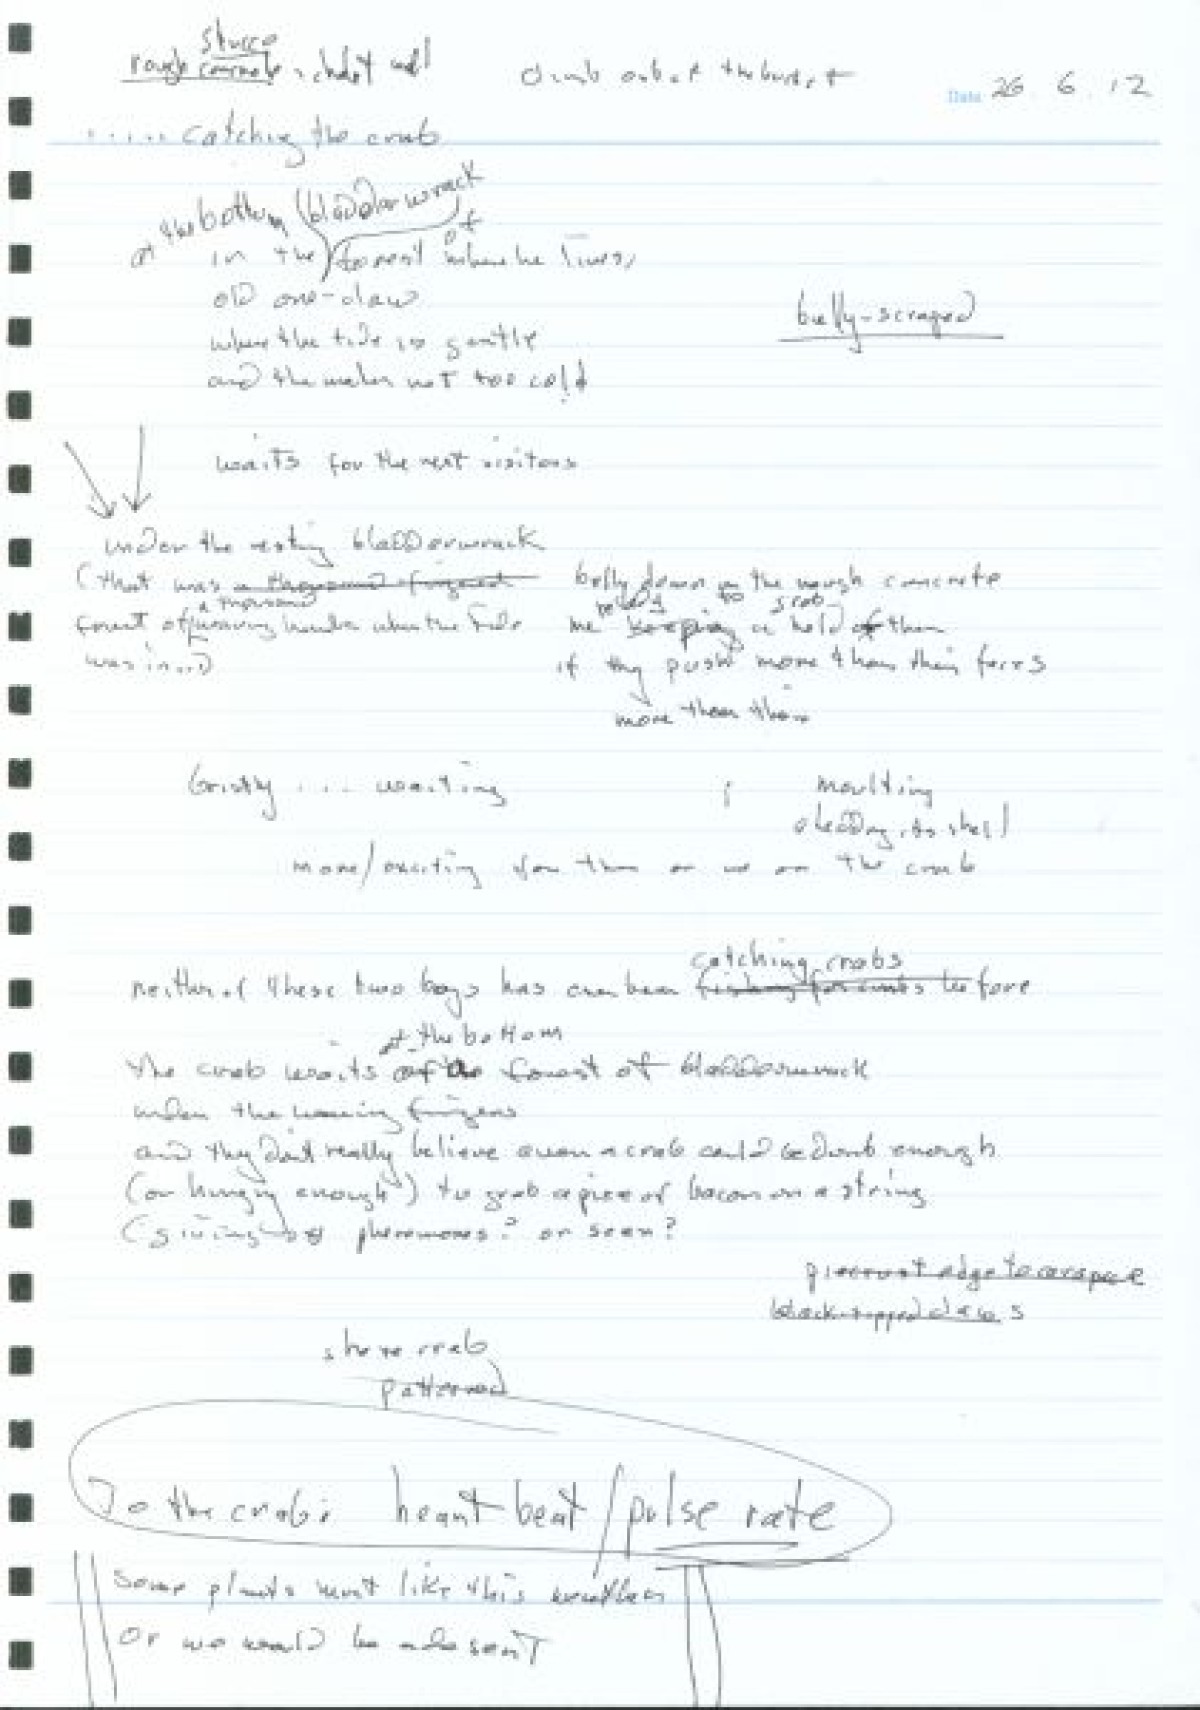 stucco
rough concrete wall
climb out of the bucket
Date 26 6 12
..... catching the crab
at the bottom (bladderwrack
in the forest of where he lives,
old one-claw
belly-scraped
where the tide is gentle
and the water not too cold
waits for the next visitors
under the resting bladderwrack
(that was a thousand fingered
belly down on the rough concrete
a thousand
ready to grab
forest of waving hands when the tide
me keeping a hold of them
was in..)
if they push more than their faces
more than their
bristly ... waiting
; moulting
shedding its shell
more/exciting for them or us or the crab
catching crabs
neither of these two boys has ever been fishing for crabs before
at the bottom
the crab waits of the forest of bladderwrack
under the waving fingers
and they don't really believe even a crab could be dumb enough
(or hungry enough) to grab a piece of bacon on a string
(giving off pheromones? or seen?
piecrust edge to carapace
black-tipped claws
shore crab
patterned
To the crab: heart beat / pulse rate
Some plants must like this weather
or we would be a desert